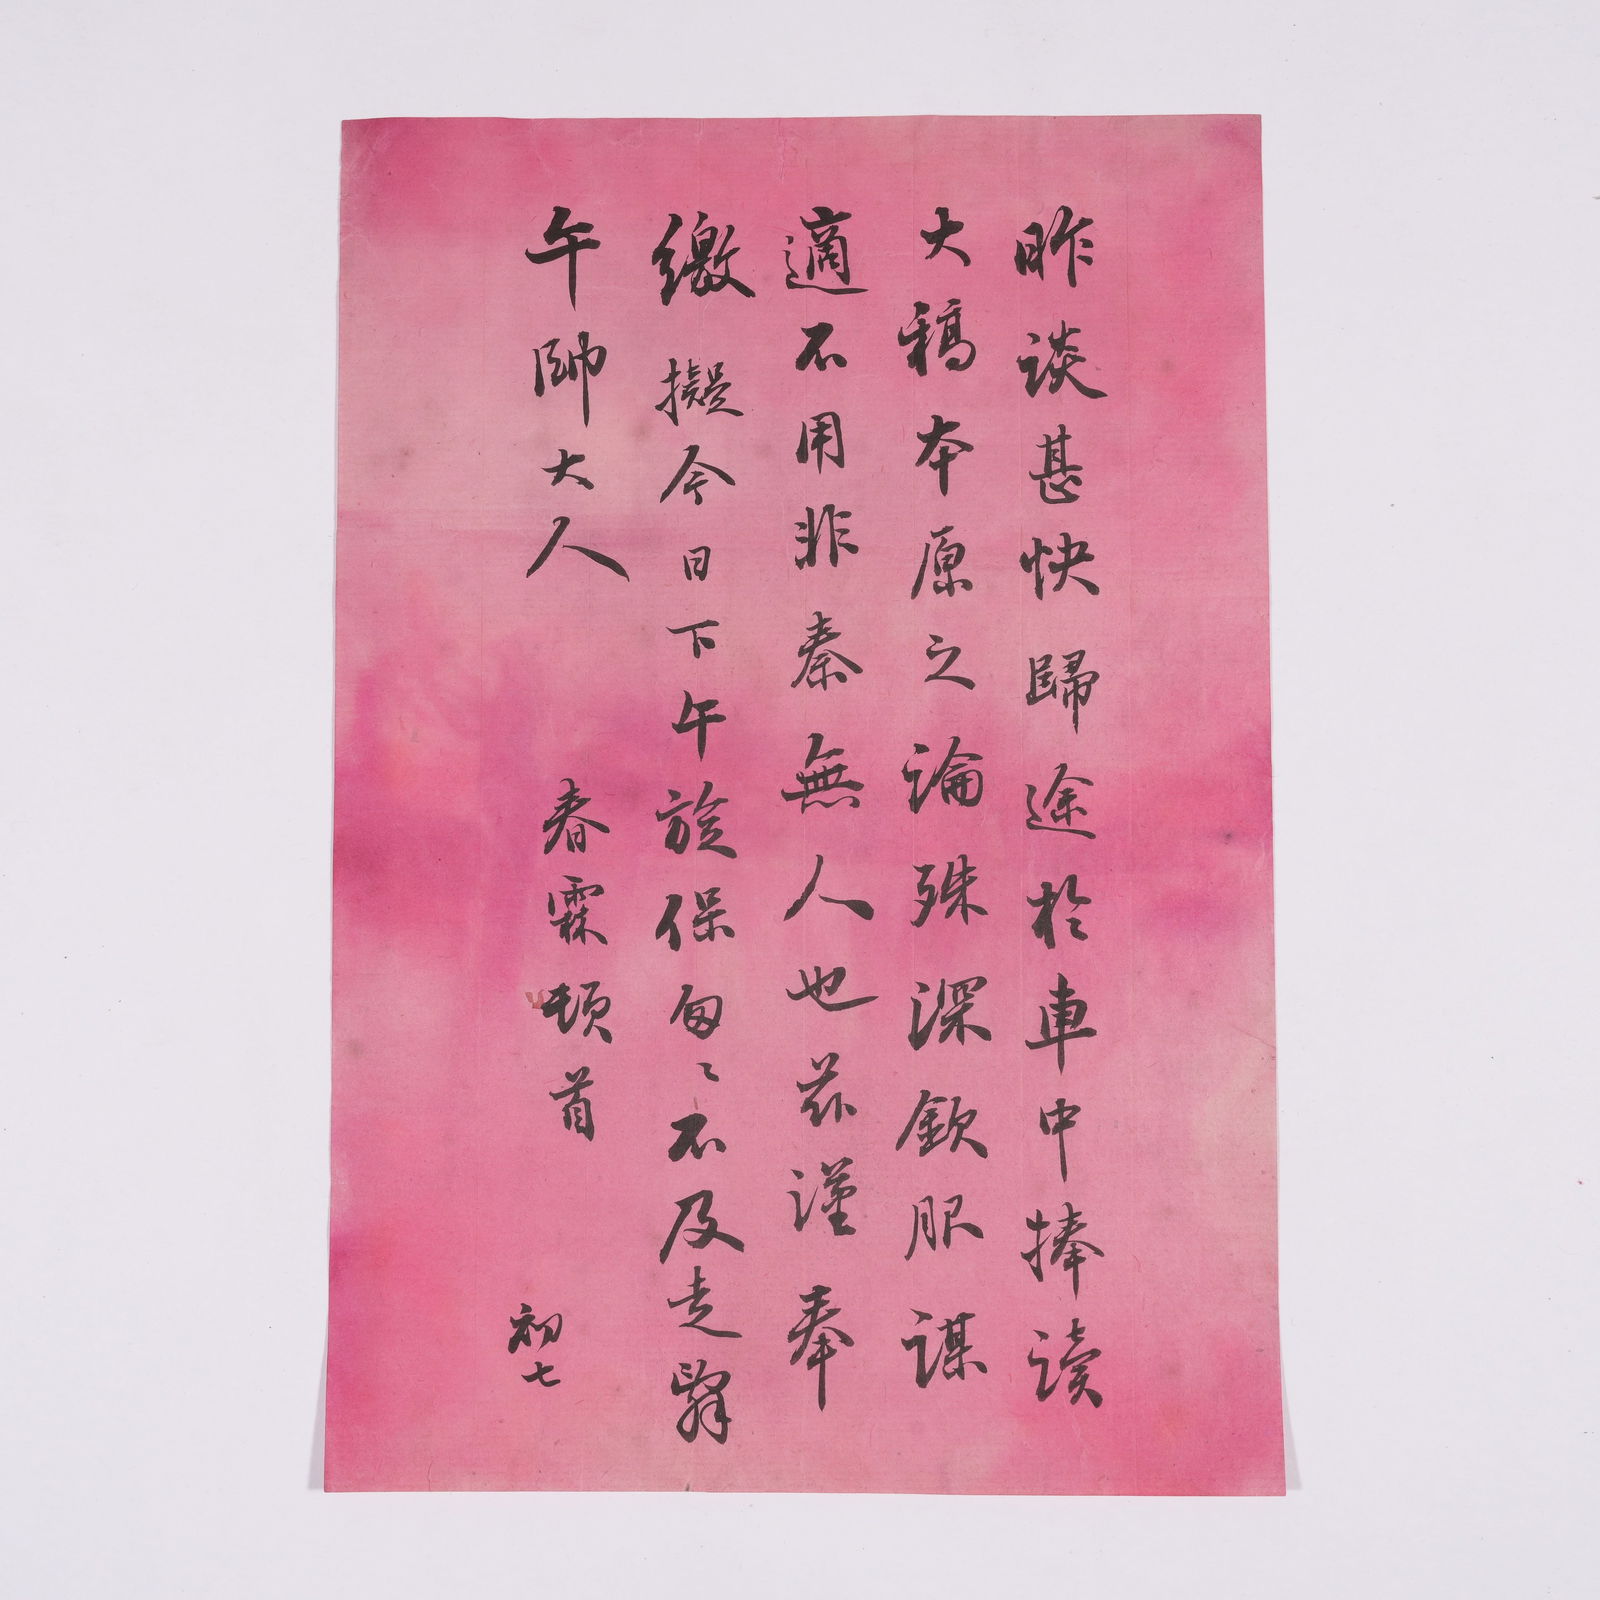 昨談甚快歸途於車中捧读
大稿本原之論殊深欽服謀
適不用非秦無人也茲謹奉
繳擬今日下午旋保匆〻不及走辭
午帥大人
春霖頓首
初七